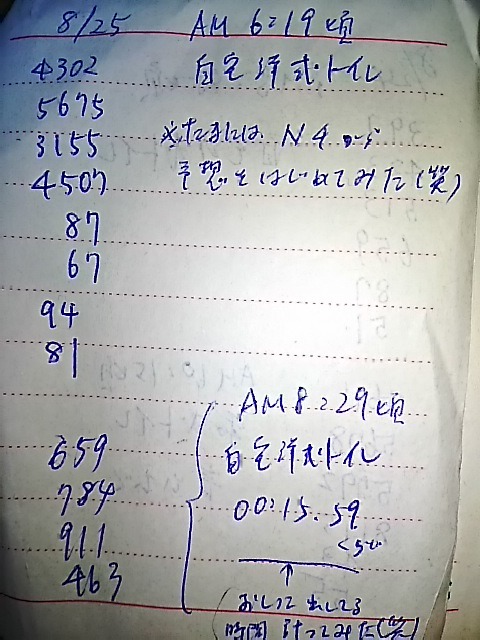 8/25 AM 6:19頃
4302 自宅洋式トイレ
5675
3155 ※たまには N4から
4507 予想をはじめてみた(笑)
87
67
94
81
AM8:29頃
659 自宅洋式トイレ
784 00:15.59
911 くらい
463 ↑
おしっこ出してる
時間 計ってみた(笑)